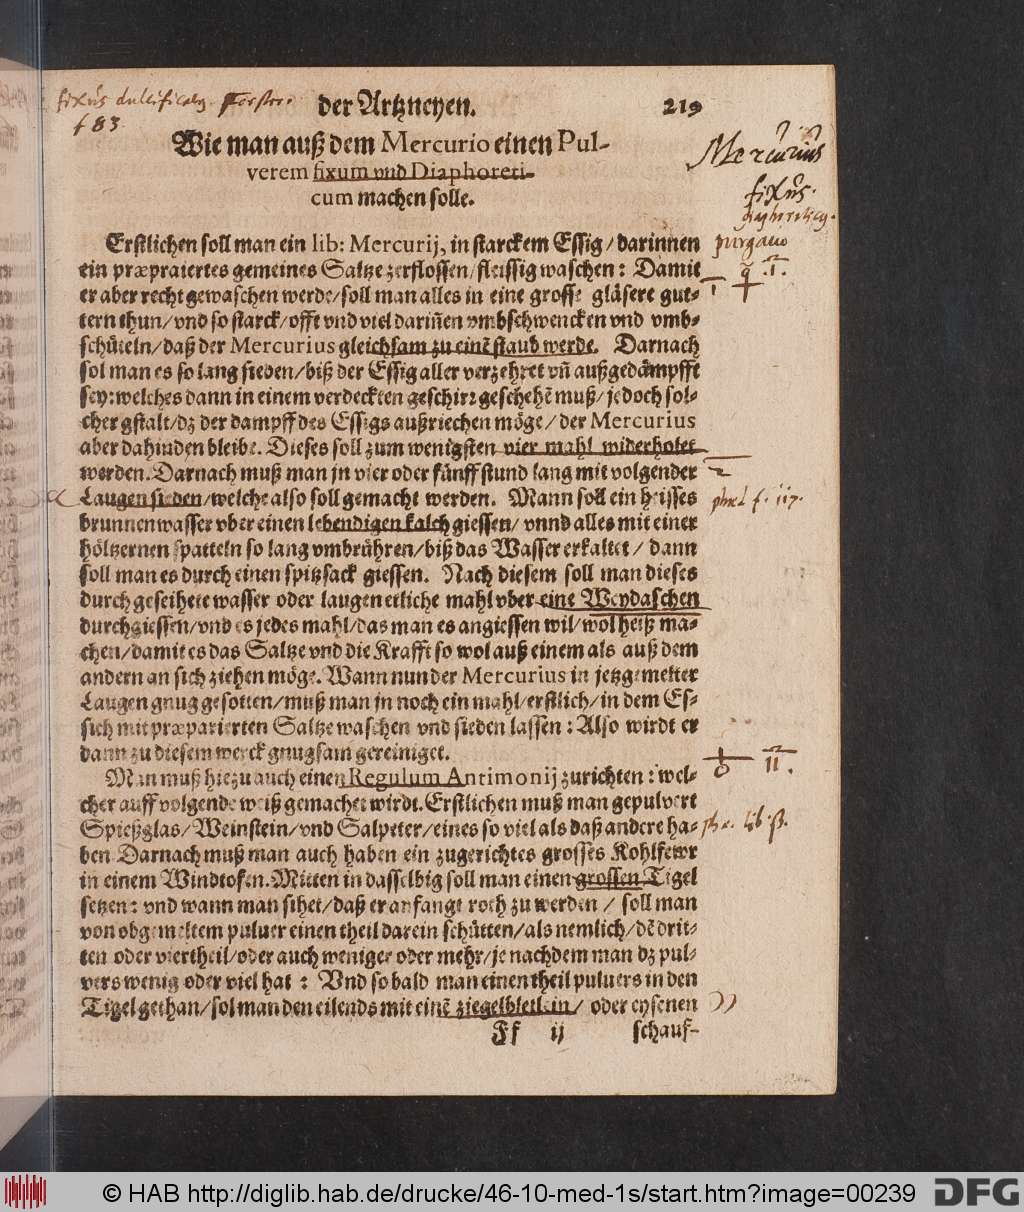 fixus dulcificatus
der Artzneyen. 219
f 83
Wie man auß dem Mercurio einen Pul-
verem fixum vnd Diaphoreti-
cum machen solle.
Mercurius
fixus.
diaphoreticus.
purgatio
Erstlichen soll man ein lib: Mercurij, in starckem Essig/darinnen
ein præpraiertes gemeines Saltze zerflossen/fleissig waschen: Damit
er aber recht gewaschen werde/soll man alles in eine grosse gläsere gut-
tern thun/vnd so starck/offt vnd viel dariñen vmbschwencken vnd vmb-
schüteln/daß der Mercurius gleichsam zu einē staub werde. Darnach
sol man es so lang sieden/biß der Essig aller verzehret vñ außgedämpfft
sey: welches dann in einem verdeckten geschirr geschehē muß/jedoch sol-
cher gstalt/dz der dampff des Essigs außriechen möge/der Mercurius
aber dahinden bleibe. Dieses soll zum wenigsten vier mahl widerholet
werden. Darnach muß man jn vier oder fünff stund lang mit volgender
Laugen sieden/welche also soll gemacht werden. Mann soll ein heisses
brunnenwasser vber einen lebendigen kalch giessen/vnnd alles mit einer
höltzernen spatteln so lang vmbrühren/biß das Wasser erkaltet/dann
soll man es durch einen spitzsack giessen. Nach diesem soll man dieses
durchgeseihete wasser oder laugen etliche mahl vber eine Weydaschen
durchgiessen/vnd es jedes mahl/das man es angiessen wil/wol heiß ma-
chen/damit es das Saltze vnd die Krafft so wol auß einem als auß dem
andern an sich ziehen möge. Wann nun der Mercurius in jetzgemelter
Laugen gnug gesotten/muß man jn noch ein mahl/erstlich/in dem Es-
sich mit præparierten Saltze waschen vnd sieden lassen: Also wirdt er
dann zu diesem werck gnugsam gereiniget.
Man muß hiezu auch einen Regulum Antimonij zurichten: wel-
II.
cher auff volgende weiß gemachet wirdt. Erstlichen muß man gepulvert
Spießglas/Weinstein/vnd Salpeter/eines so viel als daß andere ha-
ben Darnach muß man auch haben ein zugerichtes grosses Kohlfewr
in einem Windtofen. Mitten in dasselbig soll man einen grossen Tigel
setzen: vnd wann man sihet/daß er anfangt roth zu werden/soll man
von obgemeltem puluer einen theil darein schütten/als nemlich/dē drit-
ten oder viertheil/oder auch weniger oder mehr/je nachdem man dz pul-
vers wenig oder viel hat: Vnd so bald man einen theil puluers in den
Tigel gethan/sol man den eilends mit einē ziegelbletlein/oder eysenen
Ff ij schauf-
© HAB http://diglib.hab.de/drucke/46-10-med-1s/start.htm?image=00239 DFG